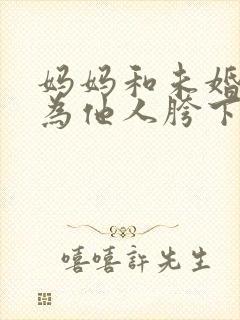 妈妈和未婚
為他人胯下
嘻嘻許先生